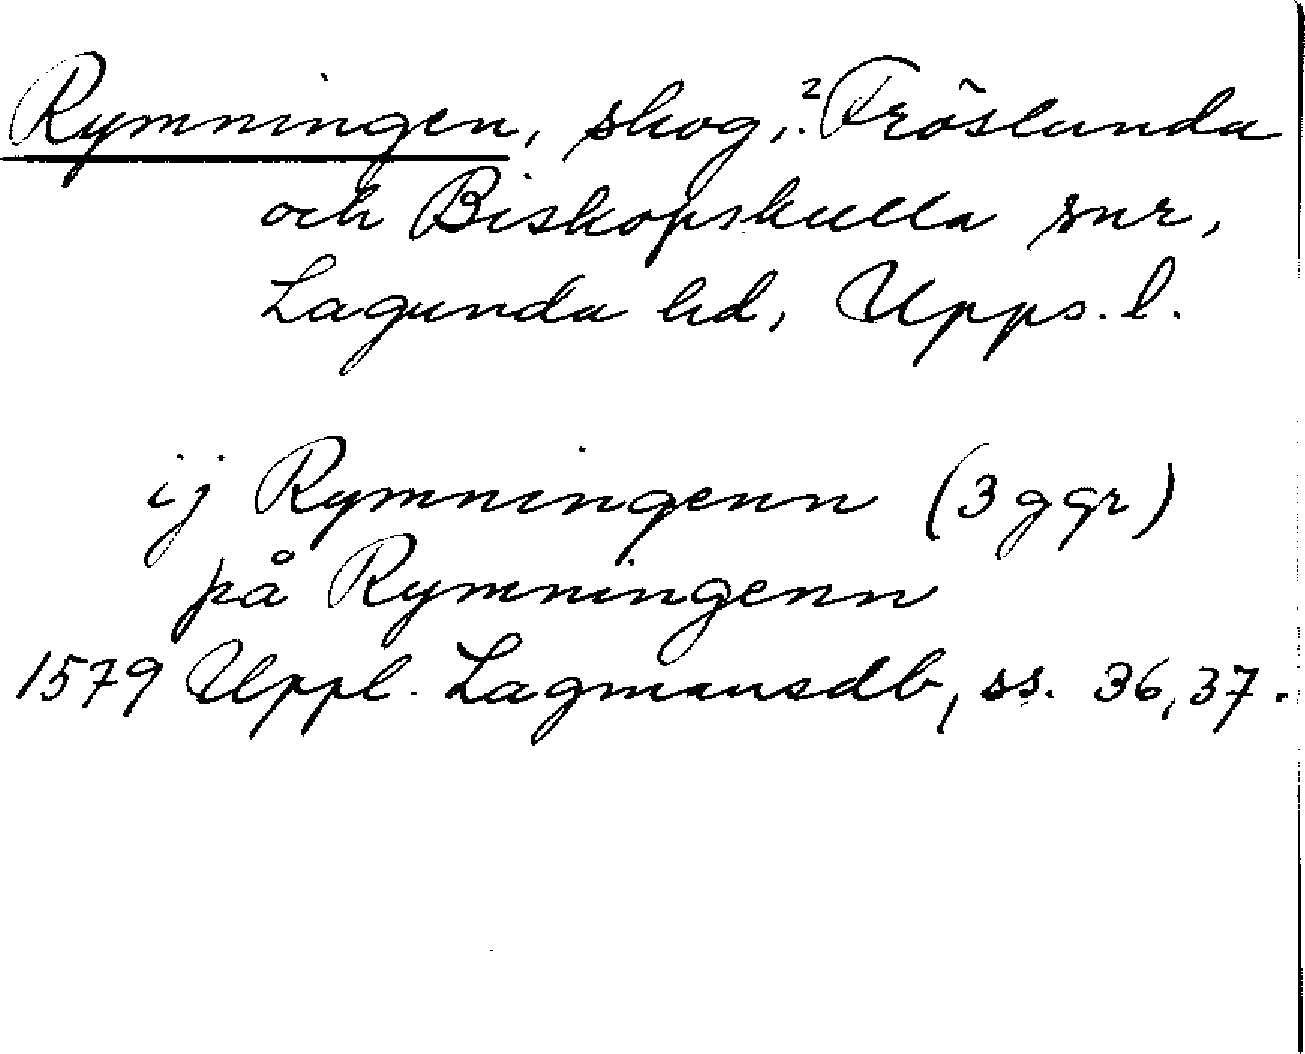 Rymningen, skog, ? Fröslunda
och Biskopskulla snr,
Lagunda hd, Upps. l.
ij Rymningenn (3 ggr)
på Rymningenn
1579 Uppl. Lagmansdb, ss. 36, 37.